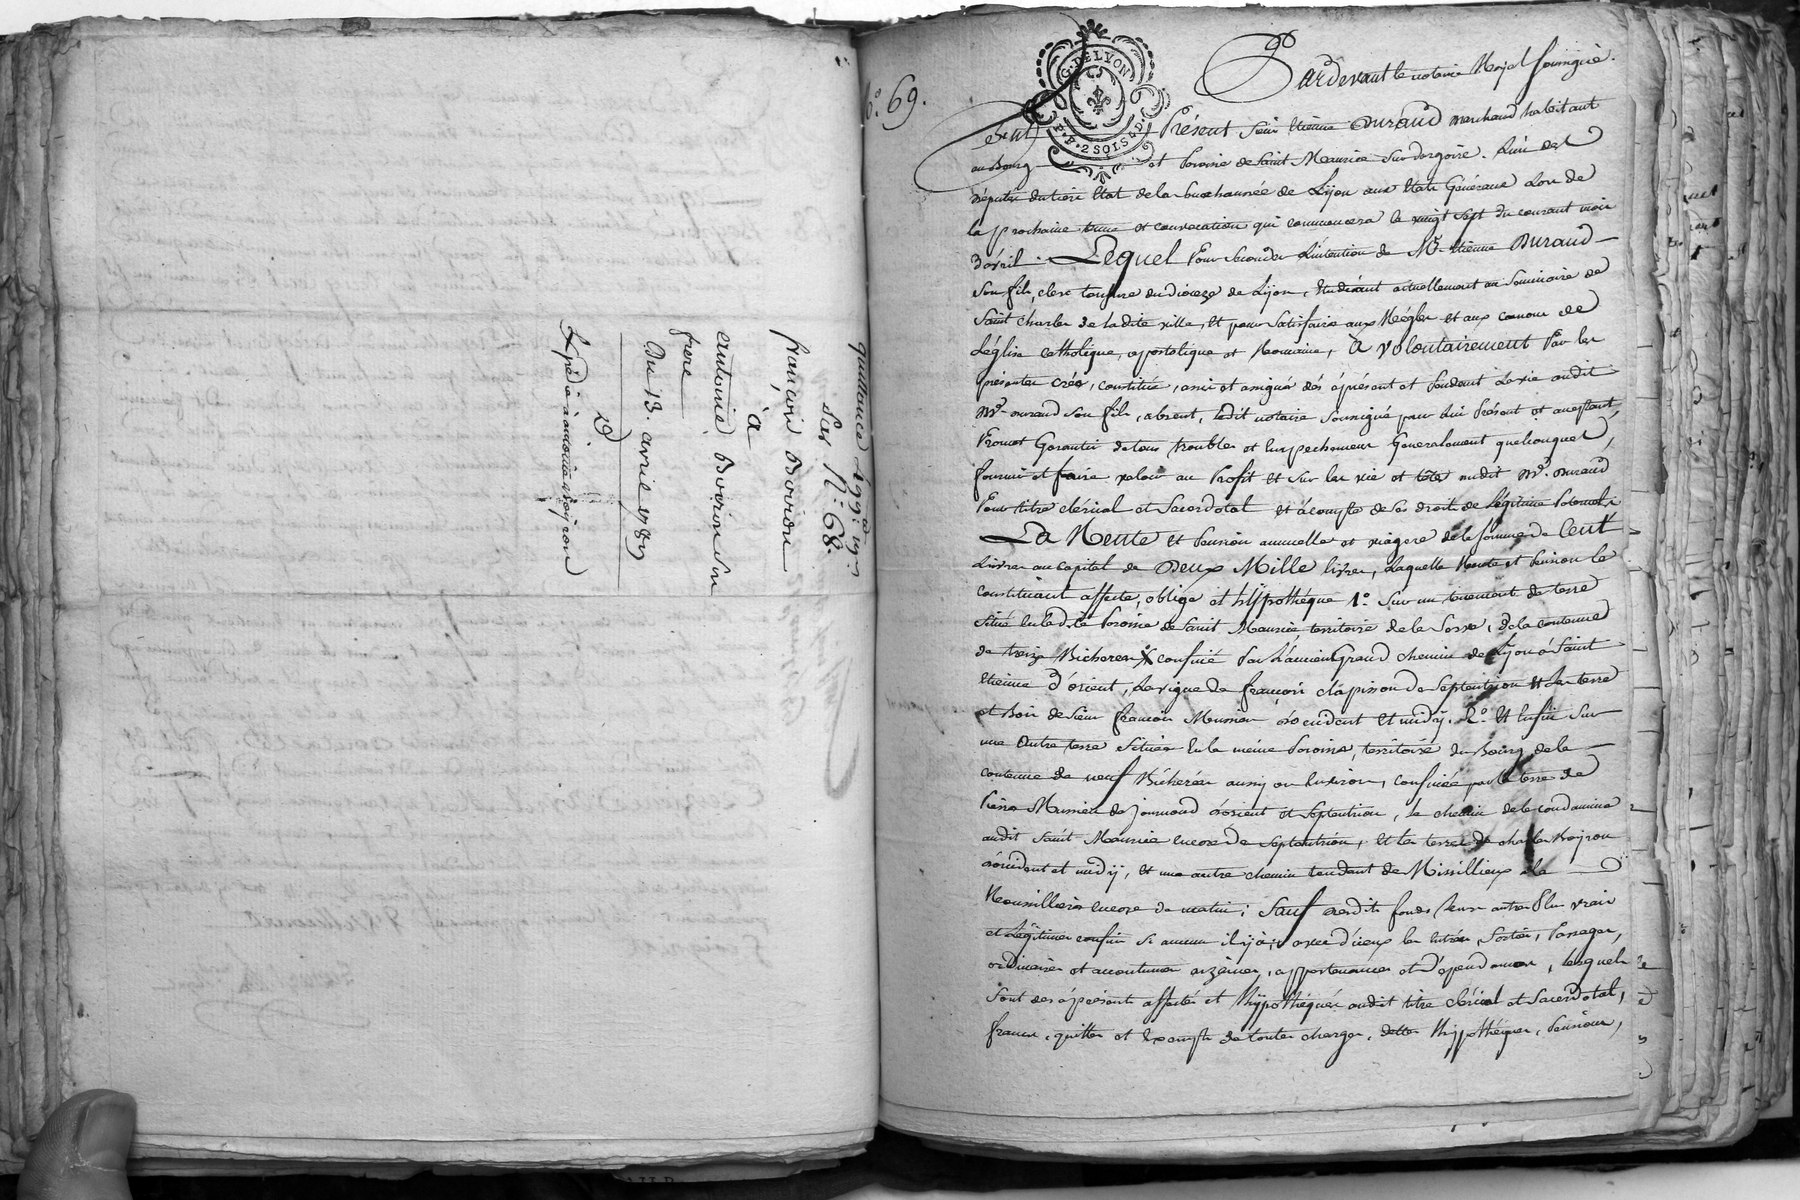 quittance
Sur N.° 68.
françois Boiron
à
antoine Boiron Son
frere
Du 13. avril 1789
Expédié à antoine Boiron
N.° 69.
G. DE LYON
P.P. 2 SOLS 4 D.
Pardevant le notaire Royal soussigné.
Présent Sieur Etienne Durand marchand habitant
au Bourg et Paroisse de Saint Maurice Sur dargoire. L'un des
députés du tiers Etat de la Senechaussée de Lyon aux Etats Généraux Lors de
la prochaine tenue et convocation qui commencera le vingt sept du courant mois
d'avril. Lequel Pour Seconder L'intention de Mr. Etienne Durand
Son fils, clerc tonsuré du diocèze de Lyon, Etudiant actuellement au Seminaire de
Saint Charles de ladite ville, Et pour Satisfaire aux Régles et aux canons de
L'église catholique, apostolique et Romaine, à volontairement Par les
présentes créé, constitué, assis et assigné dès àprésent et Pendant La vie audit
Mr. Durand Son fils, absent, ledit notaire Soussigné pour lui Présent et acceptant,
Promet Garantir de tous troubles et Empechemens Generalement quelconques,
fournir et faire valoir au Profit Et Sur les vie et tête audit Mr. Durand
Pour titre clérical et Sacerdotal et àcompte de Ses droits de Légitime Paternels
La Rente et Pension annuelle et viagere de la Somme de Cent
Livres au capital de Deux Mille livres, Laquelle Rente et Pension le
constituant affecte, oblige et hÿpothéque 1.° Sur un tenement de terre
Situé En ladite Paroisse de Saint Maurice, territoire de la , de la contenue
de treize Bicherées X confiné Par L'ancien Grand chemin de Lyon à Saint
Etienne d'orient, La vigne de françois clapisson de Septentrion Et Les terre
et Bois de Sieur françois Meunier, d'occident et midÿ. 2.° Et Enfin Sur
une autre terre Située En la même Paroisse, territoire du Bourg de la
contenue de neuf Bicherées aussi ou Environ, confinée par la terre de
Pierre Meunier de journoud d'orient et Septentrion, le chemin de la condamine
audit Saint Maurice encore de Septentrion, Et la terre de charles
d'occident et midÿ, Et une autre chemin tendant de Missillieux à la
Roussilliere encore de matin; Sauf desdits fonds leurs autres Plus vrais
et Légitimes confins Si aucuns il ÿ à; avec d'iceux les Entrées, Sorties, Passages,
ordinaires et accoutumés aizances, appartenances et Dépendances, lesquels
Sont dès àprésent affectés et hÿpothéqués audit titre clérical et Sacerdotal,
francs, quittes et Exempts de toutes charges, dettes hÿpothéques, Pensions,